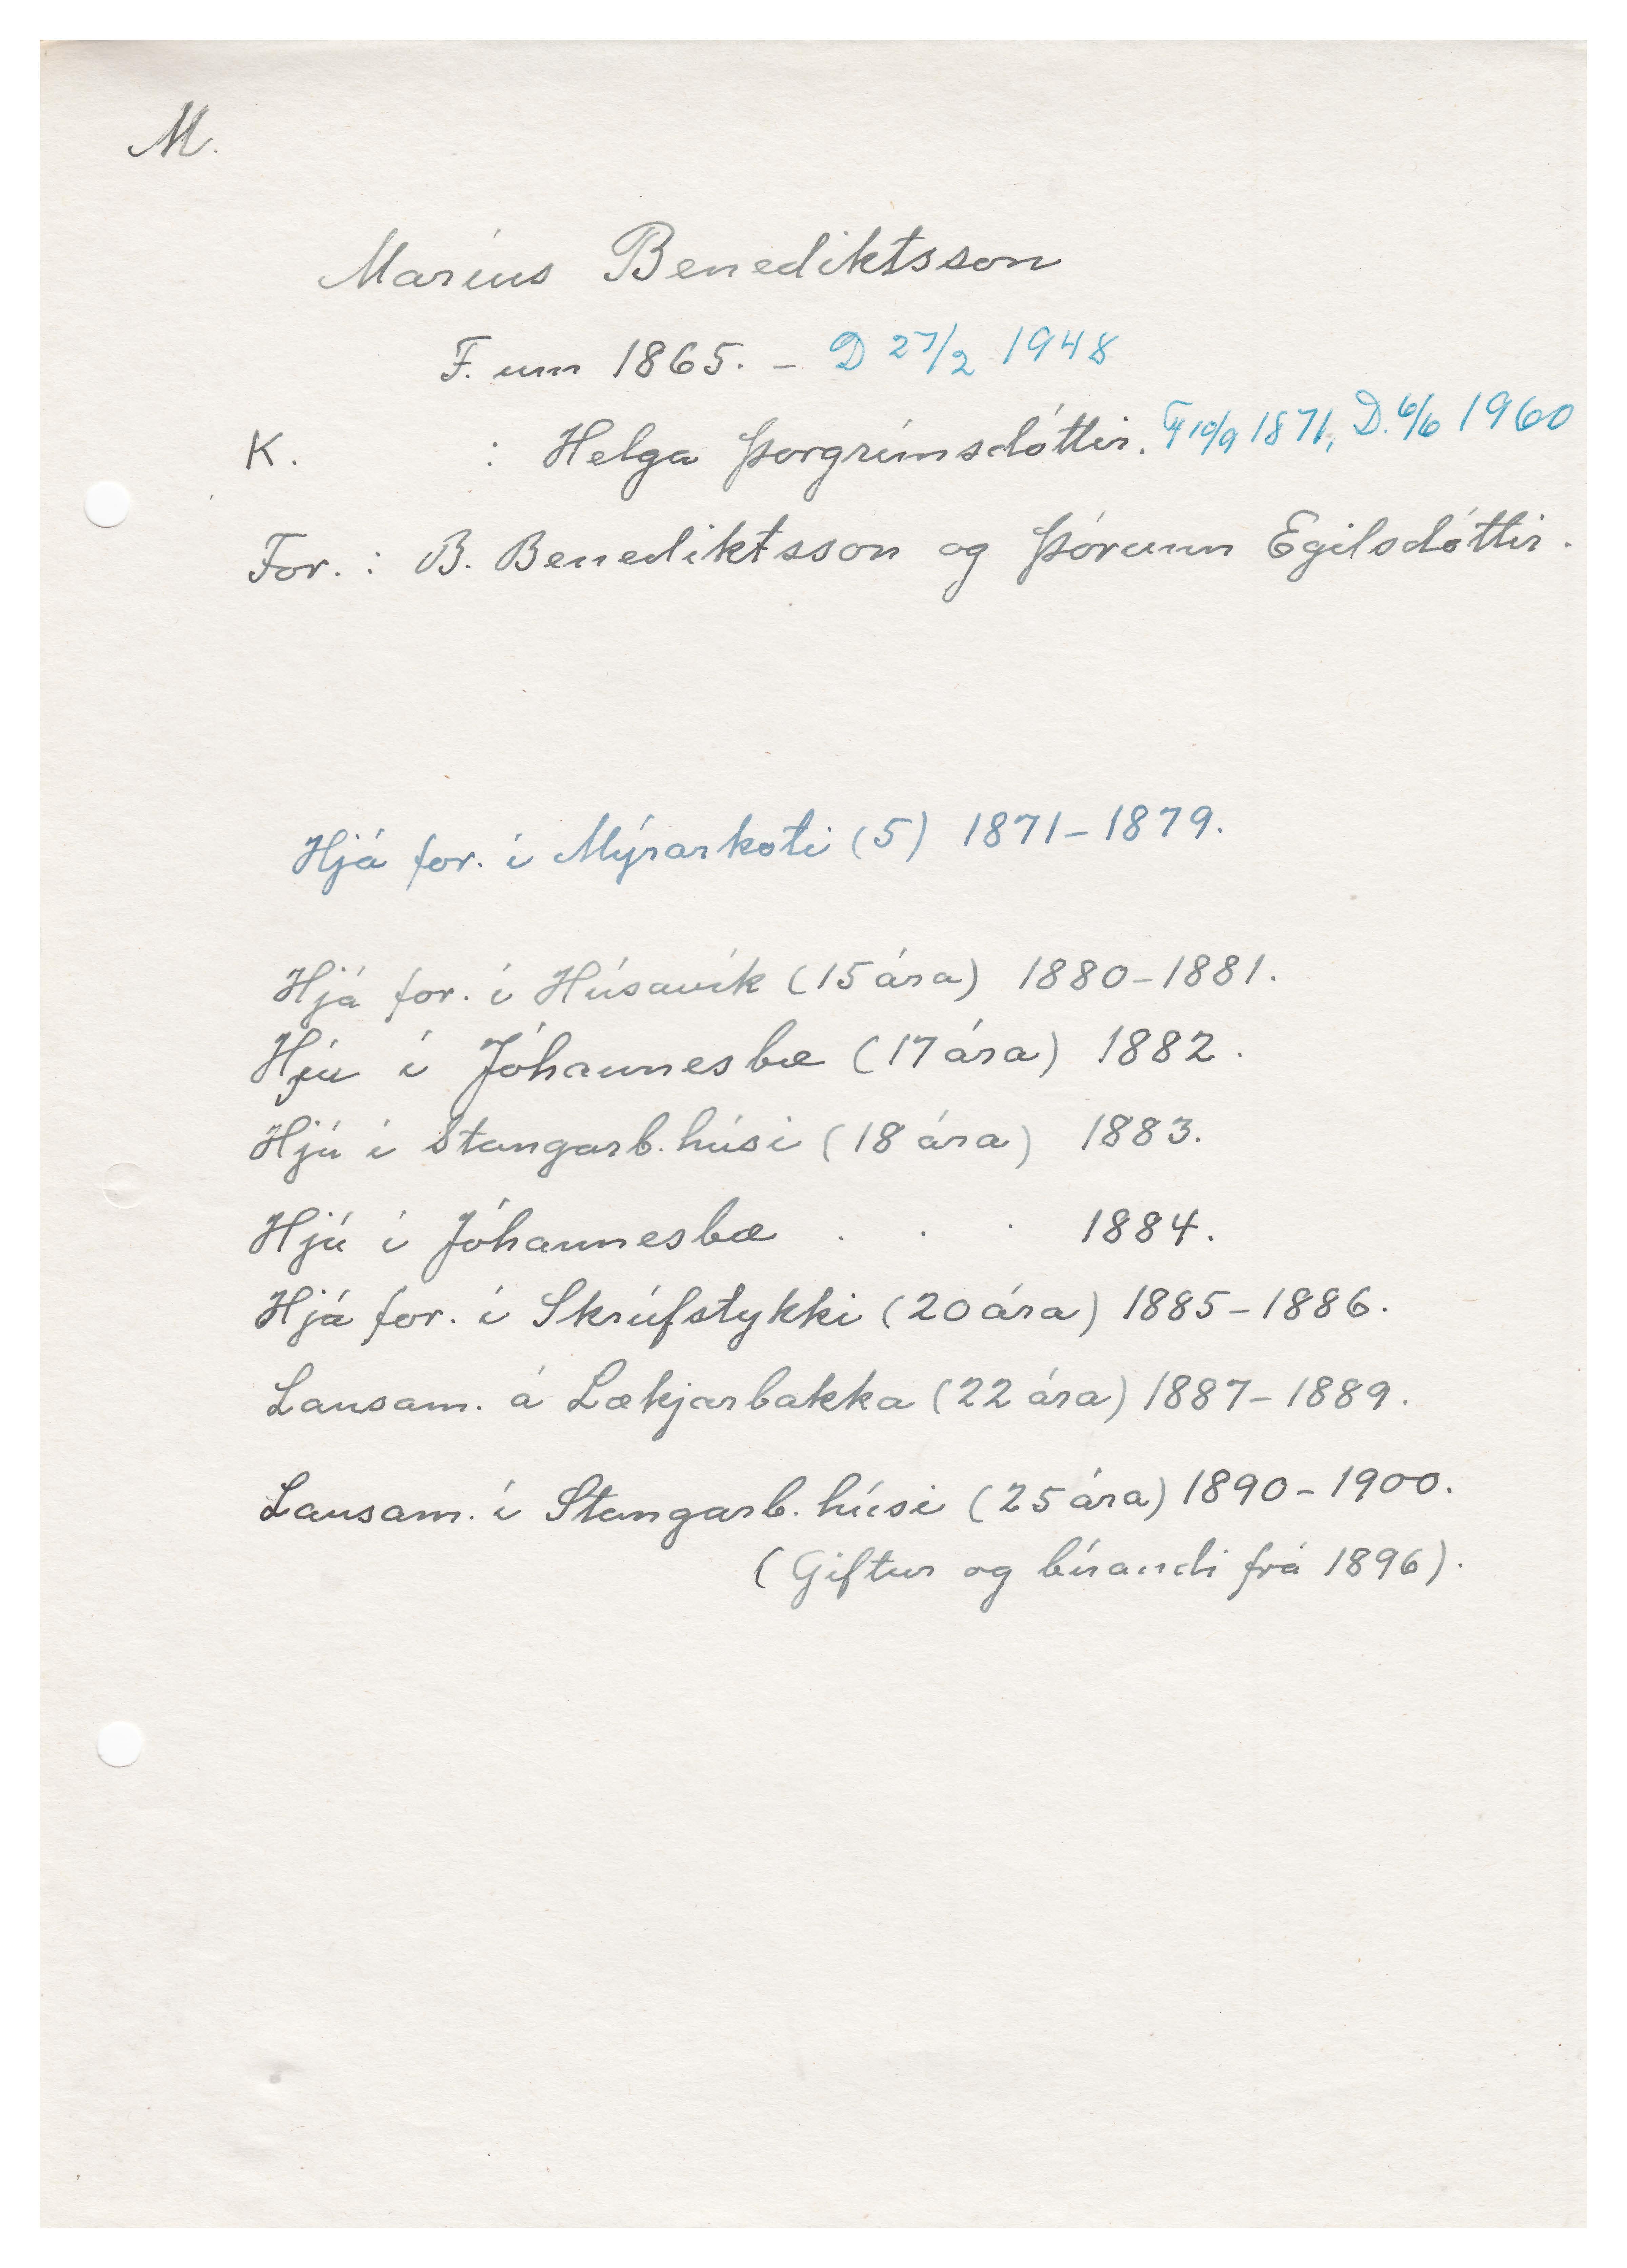 M.
Maríus Benediktsson
F. um 1865. – D 27/2 1948
K. : Helga Þorgrímsdóttir. F 10/9 1871, D. 6/6 1960
For. : B. Benediktsson og Þórunn Egilsdóttir.
Hjá for. í Mýrarkoti (5) 1871–1879.
Hjá for. í Húsavík (15 ára) 1880–1881.
Hjú í Jóhannesbæ (17 ára) 1882.
Hjú í Stangarb. húsi (18 ára) 1883.
Hjú í Jóhannesbæ . . . 1884.
Hjá for. í Skrúfstykki (20 ára) 1885–1886.
Lausam. á Lækjarbakka (22 ára) 1887–1889.
Lausam. í Stangarb. húsi (25 ára) 1890–1900.
(Giftur og búandi frá 1896).